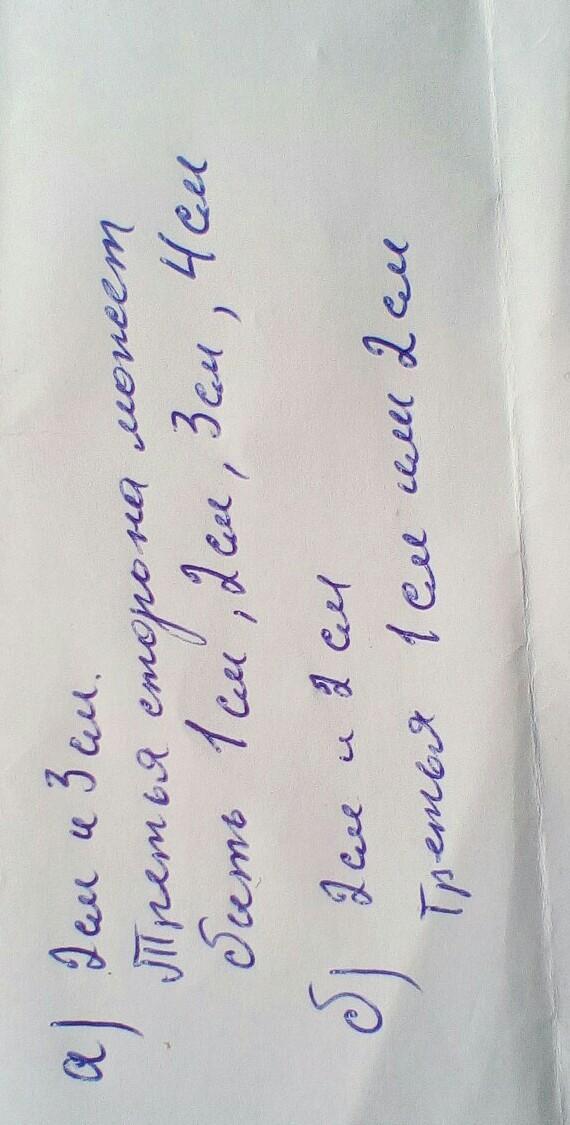 а) 2см и 3см.
Третья сторона может
быть 1см, 2см, 3см, 4см
б) 2см и 2см
Третья 1см или 2см